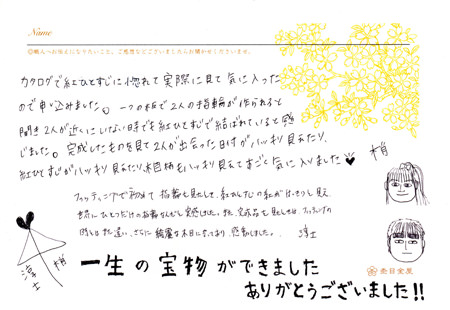 Name
◎職人へお伝えになりたいこと、ご感想などございましたらお聞かせくださいませ。
カタログで紅ひとすじに惚れて実際に見て気に入った
ので申し込みました。一つの板で2人の指輪が作られると
聞き2人が近くにいない時でも紅ひとすじで結ばれていると感
じました。完成したものを見て2人が出会った日付がハッキリ見えたり、
紅ひとすじがハッキリ見えたり、木目柄もハッキリ見えてすごく気に入りました♥
フィッティングで初めて指輪を見たとして、紅ひとすじの紅がはっきりし見え、
世界にひとつだけの指輪なんだと実感した。また、完成品を見たときは、フィッティングの
時とはまた違い、さらに綺麗な木目になっており感動しました。 淳士
梢
淳士 梢
一生の宝物ができました
ありがとうございました!!
杢目金屋